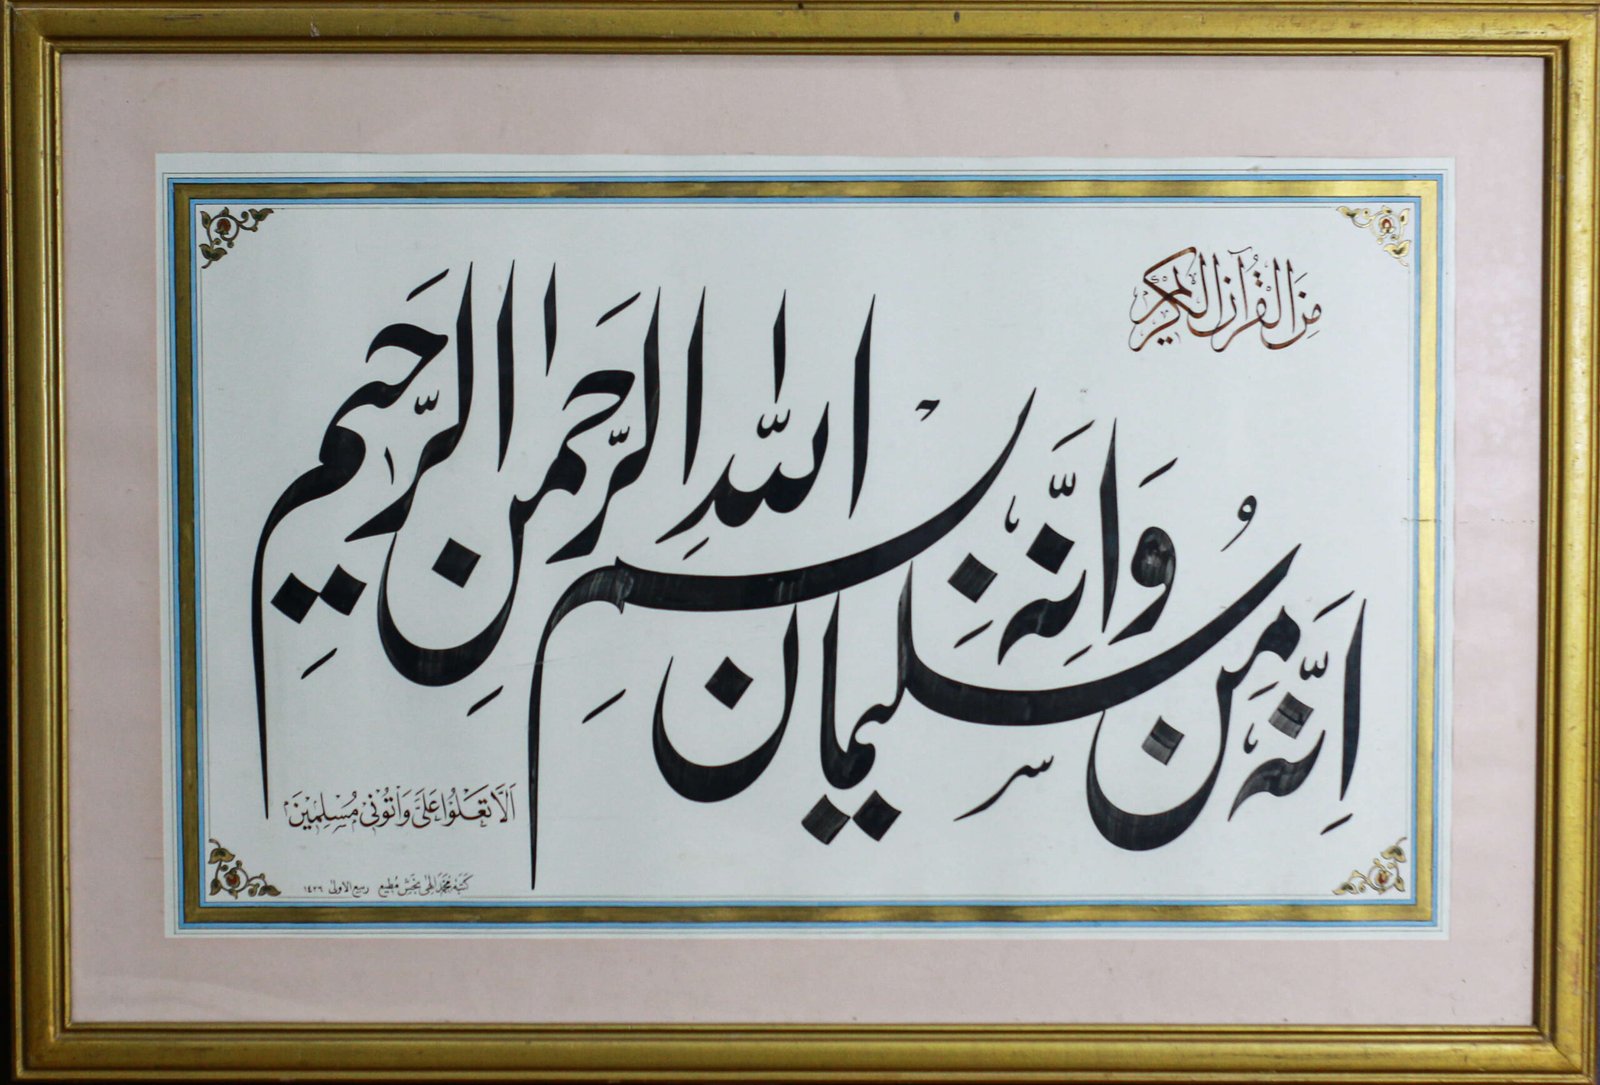 مِنَ الْقُرْآنِ الْكَرِيمِ
اِنَّهٗ مِنْ سُلیمان وَاِنَّهٗ بِسْمِ اللّٰهِ الرَّحمٰنِ الرَّحیمِ
اَلَّا تَعْلُوْا عَلَیَّ وَاْتُوْنِیْ مُسْلِمِیْنَ
كتبه محمد الٰہی بخش مطیع ربیع الاولیٰ ١٤٢٦